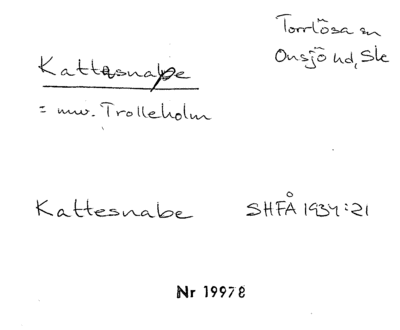 Torrlösa sn
Onsjö hd, Sk
Kattesnabe
= nuv. Trolleholm
Kattesnabe SHFÅ 1934:21
Nr 19978